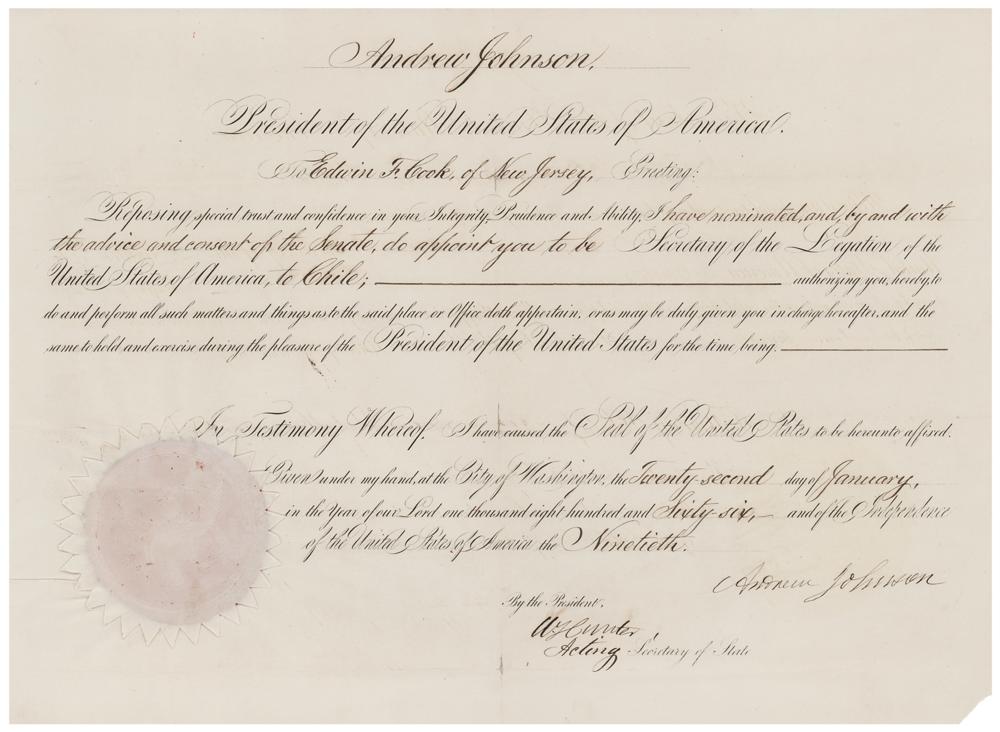 Andrew Johnson,
President of the United States of America.
To Edwin F. Cook, of New Jersey, Greeting:
Reposing special trust and confidence in your Integrity, Prudence and Ability, I have nominated, and, by and with
the advice and consent of the Senate, do appoint you to be Secretary of the Legation of the
United States of America, to Chile; authorizing you, hereby, to
do and perform all such matters and things as to the said place or Office doth appertain, or as may be duly given you in charge hereafter, and the
same to hold and exercise during the pleasure of the President of the United States for the time being.
In Testimony Whereof, I have caused the Seal of the United States to be hereunto affixed.
Given under my hand, at the City of Washington, the Twenty-second day of January,
in the Year of our Lord one thousand eight hundred and Sixty-six, and of the Independence
of the United States of America the Ninetieth.
Andrew Johnson
By the President,
W Hunter,
Acting Secretary of State